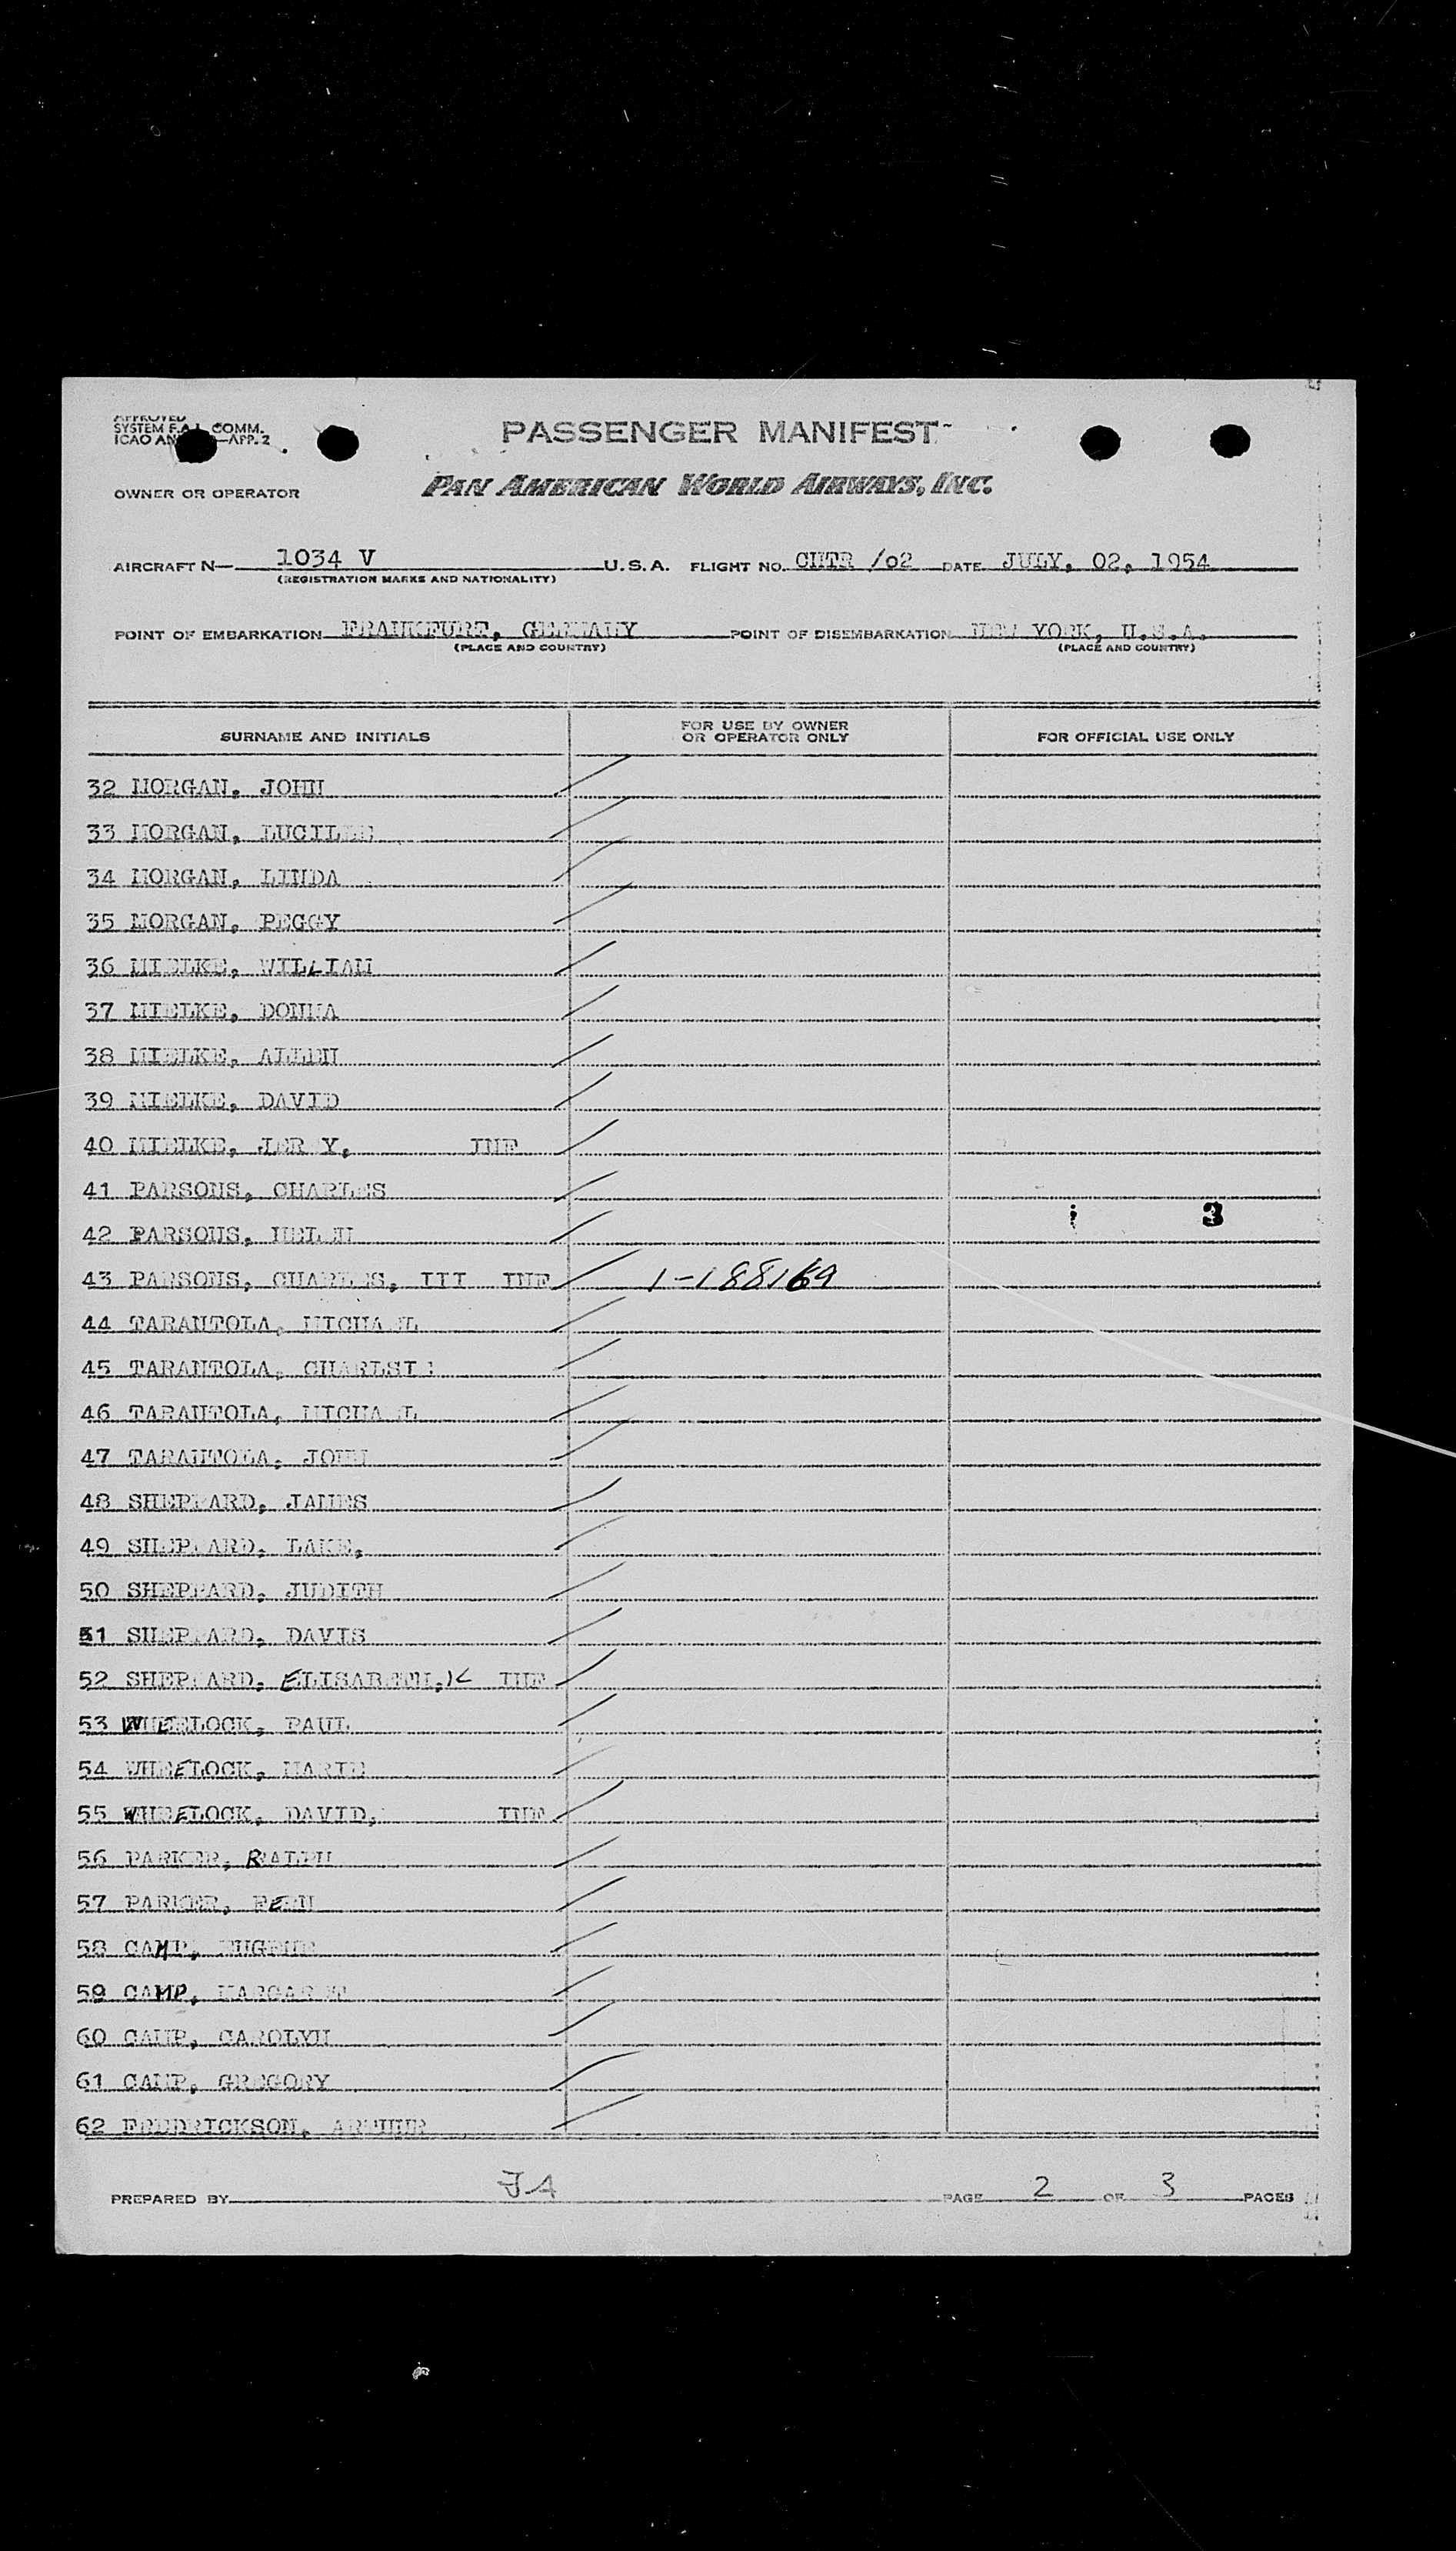 APPROVED
SYSTEM F.A.L. COMM.
ICAO AN —APP. 2
PASSENGER MANIFEST
OWNER OR OPERATOR PAN AMERICAN WORLD AIRWAYS, INC.
AIRCRAFT N— 1034 V U.S.A. FLIGHT NO. CHTR /02 DATE JULY, 02, 1954
(REGISTRATION MARKS AND NATIONALITY)
POINT OF EMBARKATION FRANKFURT, GERMANY POINT OF DISEMBARKATION NEW YORK, U.S.A.
(PLACE AND COUNTRY) (PLACE AND COUNTRY)
SURNAME AND INITIALS FOR USE BY OWNER OR OPERATOR ONLY FOR OFFICIAL USE ONLY
32 MORGAN, JOHN
33 MORGAN, LUCILLE
34 MORGAN, LINDA
35 MORGAN, PEGGY
36 MIELKE, WILLIAM
37 MIELKE, DONNA
38 MIELKE, ALLEN
39 MIELKE, DAVID
40 MIELKE, JER Y, INF
41 PARSONS, CHARLES
3
42 PARSONS, HELEN
43 PARSONS, CHARLES, III INF 1-188169
44 TARANTOLA, MICHAEL
45 TARANTOLA,
46 TARANTOLA, MICHAEL
47 TARANTOLA, JOHN
48 SHEPPARD, JAMES
49 SHEPPARD, LAKE,
50 SHEPPARD, JUDITH
51 SHEPPARD, DAVIS
52 SHEPPARD, ELISABETH, K INF
53 WHEELOCK, PAUL
54 WHEELOCK, MARIE
55 WHEELOCK, DAVID, INF
56 PARKER, RALPH
57 PARKER, FERN
58 CAMP, EUGENE
59 CAMP, MARGARET
60 CAMP, CAROLYN
61 CAMP, GREGORY
62 FREDRICKSON, ARTHUR
PREPARED BY JA PAGE 2 OF 3 PAGES